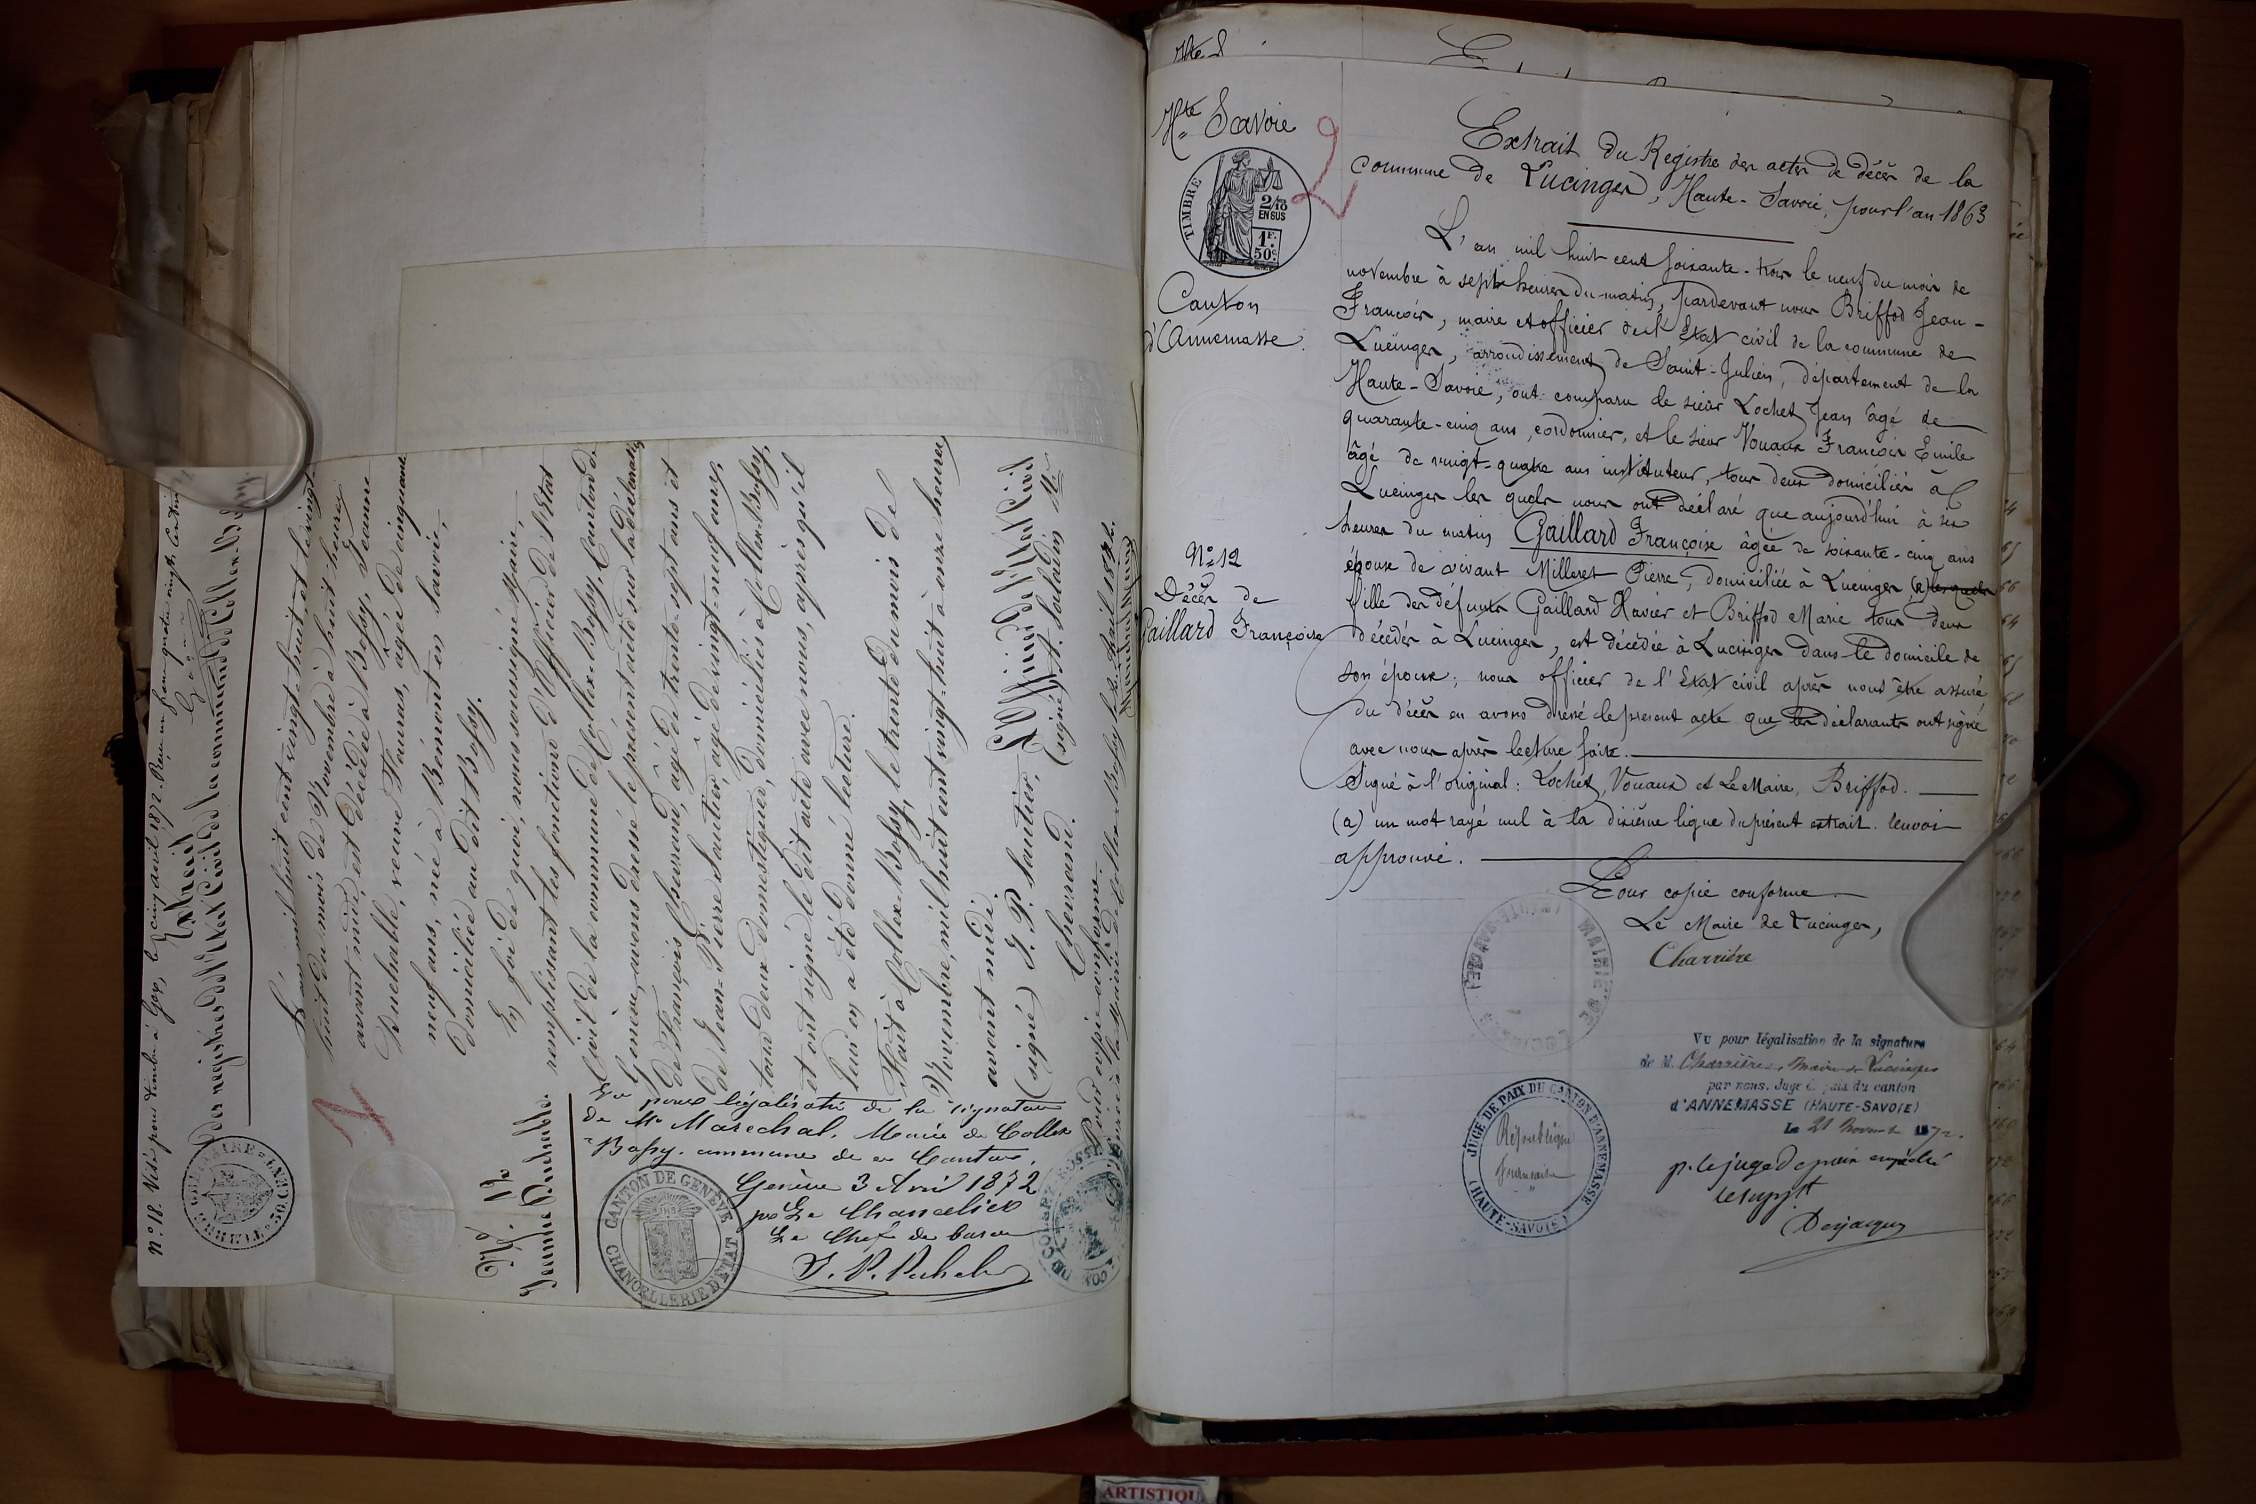 N.º 18. Visé pour timbre à Gex, le cinq avril 1872. Reçu un franc quatre vingts centimes
Extrait
des registres de l'Etat Civil de la commune de Collex-Bossy
L'an mil huit cent vingt-huit et le vingt
huit du mois de Novembre à huit heures
avant midi est décédée à Bossy, Jeanne
Duchable, veuve Nauras, âgée de cinquante
neuf ans, née à Bémont en Savoie,
domiciliée au dit Bossy.
En foi de quoi, nous soussigné Maire,
remplissant les fonctions d'Officier de l'Etat
Civil de la commune de Collex-Bossy, Canton de
Genève, avons dressé le présent acte sur la déclaration
de François Chevrand, âgé de trente-sept ans et
de Jean-Pierre Sautier, âgé de vingt-neuf ans,
tous deux domestiques, domiciliés à Collex-Bossy,
et ont signé le dit acte avec nous, après qu'il
leur en a été donné lecture.
Fait à Collex-Bossy, le trente du mois de
Novembre, mil huit cent vingt-huit à onze heures
avant midi. L'Officier de l'Etat Civil
(signé) J. P. Sautier, (signé) A. Saladin Mre
Chevrand.
Pour copie conforme.
Nº. 12
Jeanne Duchable.
Vu pour légalisation de la signature
de Mr Marechal, Maire de Collex
Bossy, commune de ce Canton.
Genève 3 Avril 1872
pr Le Chancelier
Le Chef de bureau
CANTON DE GENÈVE
CHANCELLERIE D'ETAT
Hte Savoie
2
TIMBRE
2/10
EN SUS
1F.
50c
Canton
d'Annemasse.
Nº 12
Décès de
Gaillard Françoise
Extrait du Registre des actes de décès de la
commune de Lucinges, Haute-Savoie, pour l'an 1863
L'an mil huit cent soixante-trois le neuf du mois de
novembre à sept heures du matin, pardevant nous Briffod Jean-
François, maire et officier de l'Etat civil de la commune de
Lucinges, arrondissement de Saint-Julien, département de la
Haute-Savoie, ont comparu le sieur Lochet Jean âgé de
quarante-cinq ans, cordonnier, et le sieur Vouaux François Emile
âgé de vingt-quatre ans instituteur, tous deux domiciliés à
Lucinges les quels nous ont déclaré que aujourd'hui à six
heures du matin Gaillard Françoise âgée de soixante-cinq ans
épouse de vivant Milleret Pierre, domiciliée à Lucinges (a) les quels
fille des défunts Gaillard Xavier et Briffod Marie tous deux
décédés à Lucinges, est décédée à Lucinges dans le domicile de
son époux; nous officier de l'Etat civil après nous être assuré
du décès en avons dressé le présent acte que les déclarants ont signé
avec nous après lecture faite.
Signé à l'original: Lochet, Vouaux et Le Maire, Briffod.
(a) un mot rayé nul à la dixième ligne du présent extrait. renvoi
approuvé.
Pour copie conforme
Le Maire de Lucinges,
Charrière
MAIRIE DE
Vu pour légalisation de la signature
de M. Charrière, maire de Lucinges
par nous, Juge de paix du canton
d'ANNEMASSE (HAUTE-SAVOIE)
Le 21 Novembre 1872.
p. le juge de paix empêché
le suppt
Desjacques
JUGE DE PAIX DU CANTON D'ANNEMASSE
(HAUTE-SAVOIE)
République
Française
ARTISTIQU